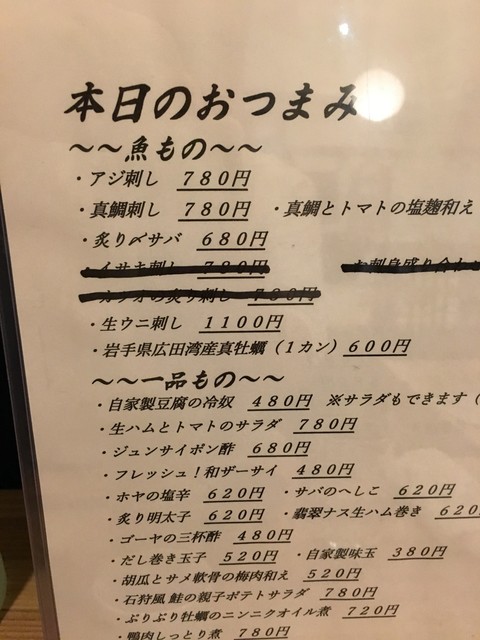 本日のおつまみ
～～魚もの～～
・アジ刺し 780円
・真鯛刺し 780円 ・真鯛とトマトの塩麹和え
・炙り〆サバ 680円
・イサキ刺し 780円 お刺身盛り合わせ
・カツオの炙り刺し 780円
・生ウニ刺し 1100円
・岩手県広田湾産真牡蠣（1カン）600円
～～一品もの～～
・自家製豆腐の冷奴 480円 ※サラダもできます（
・生ハムとトマトのサラダ 780円
・ジュンサイポン酢 680円
・フレッシュ！和ザーサイ 480円
・ホヤの塩辛 620円 ・サバのへしこ 620円
・炙り明太子 620円 ・翡翠ナス生ハム巻き 620
・ゴーヤの三杯酢 480円
・だし巻き玉子 520円 ・自家製味玉 380円
・胡瓜とサメ軟骨の梅肉和え 520円
・石狩風 鮭の親子ポテトサラダ 780円
・ぷりぷり牡蠣のニンニクオイル煮 720円
・鴨肉しっとり煮 780円